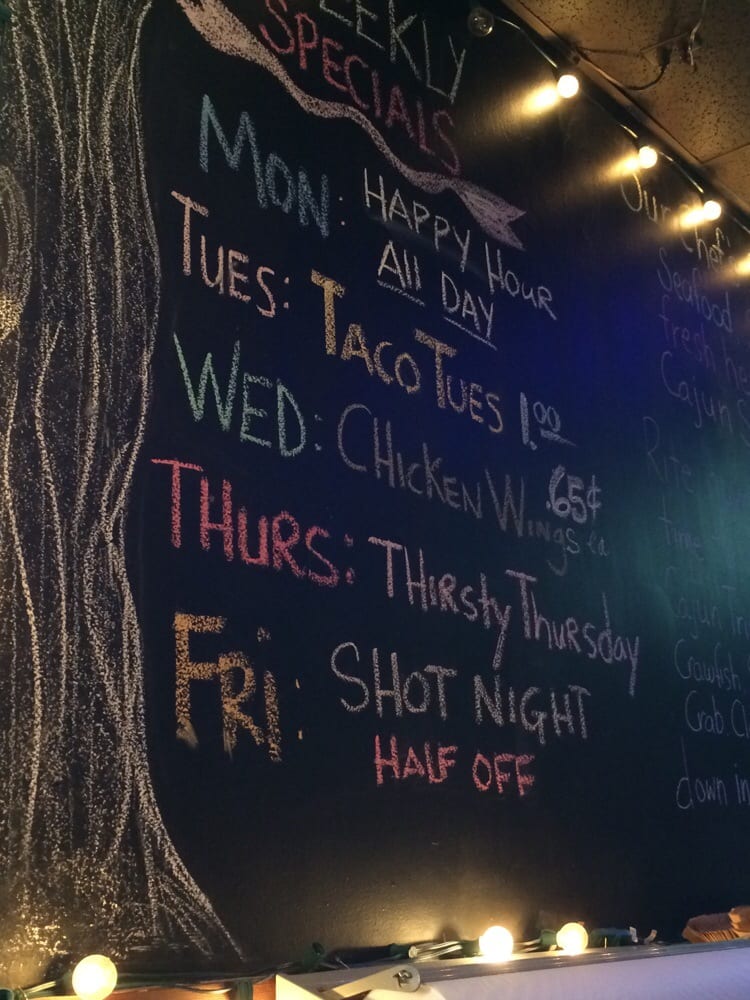 EEKLY
SPECIALS
MON: HAPPY HOUR
All DAY
TUES: TACO TUES 1.00
WED: CHICKEN WINGS .65¢ ea
THURS: THIRSTY THURSDAY
FRI: SHOT NIGHT
HALF OFF
Our Chef
Seafood
fresh
Cajun
Rite
time
Cajun
Crawfish
Crab
down in